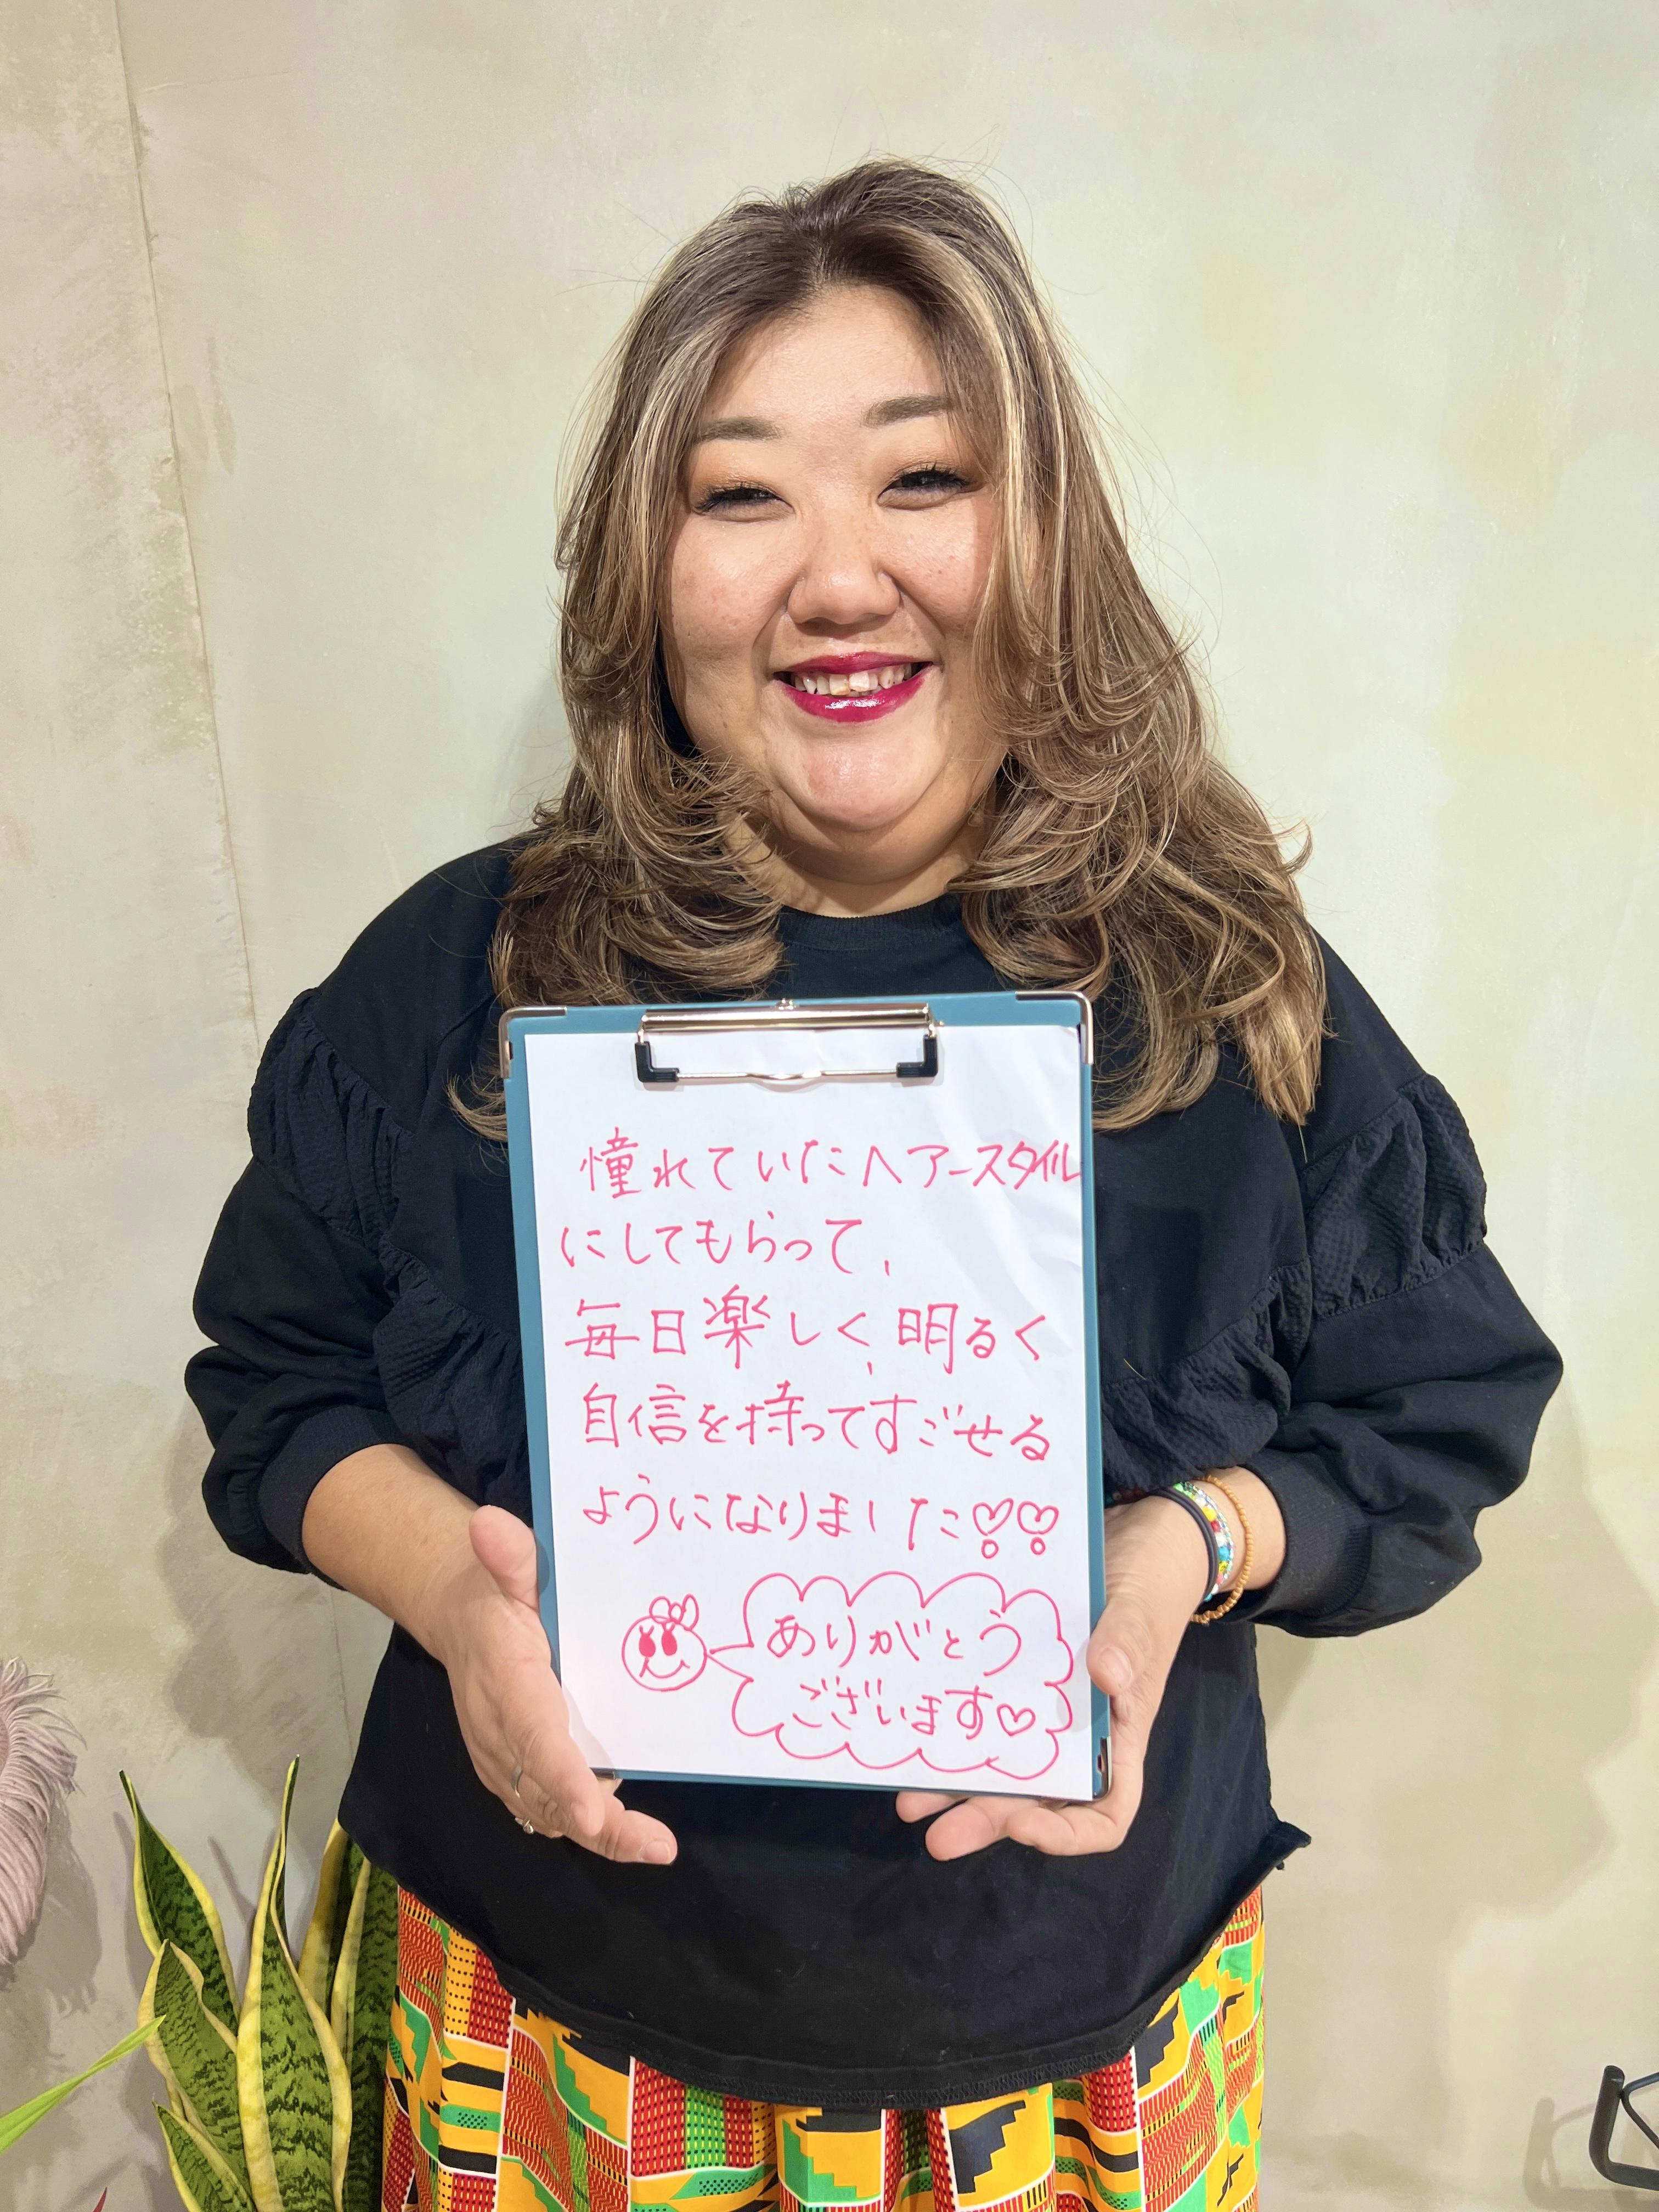 憧れていたヘアースタイル
にしてもらって、
毎日楽しく、明るく
自信を持ってすごせる
ようになりました♡♡
ありがとう
ございます♡